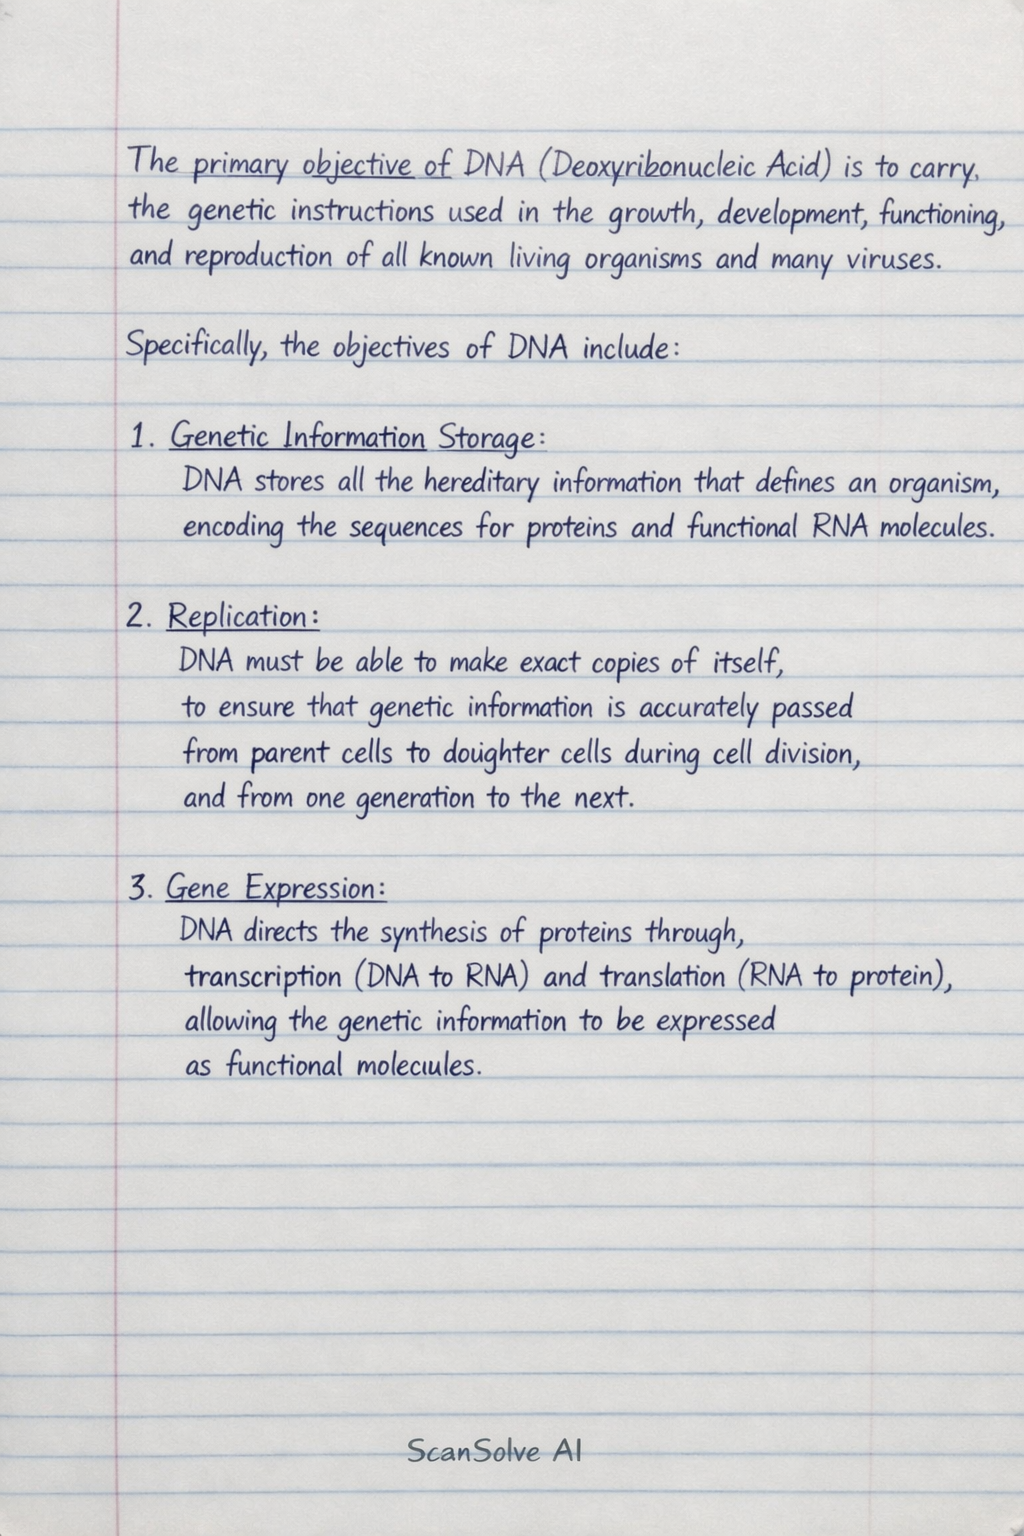 The primary objective of DNA (Deoxyribonucleic Acid) is to carry,
the genetic instructions used in the growth, development, functioning,
and reproduction of all known living organisms and many viruses.
Specifically, the objectives of DNA include:
1. Genetic Information Storage:
DNA stores all the hereditary information that defines an organism,
encoding the sequences for proteins and functional RNA molecules.
2. Replication:
DNA must be able to make exact copies of itself,
to ensure that genetic information is accurately passed
from parent cells to doughter cells during cell division,
and from one generation to the next.
3. Gene Expression:
DNA directs the synthesis of proteins through,
transcription (DNA to RNA) and translation (RNA to protein),
allowing the genetic information to be expressed
as functional moleciules.
ScanSolve AI